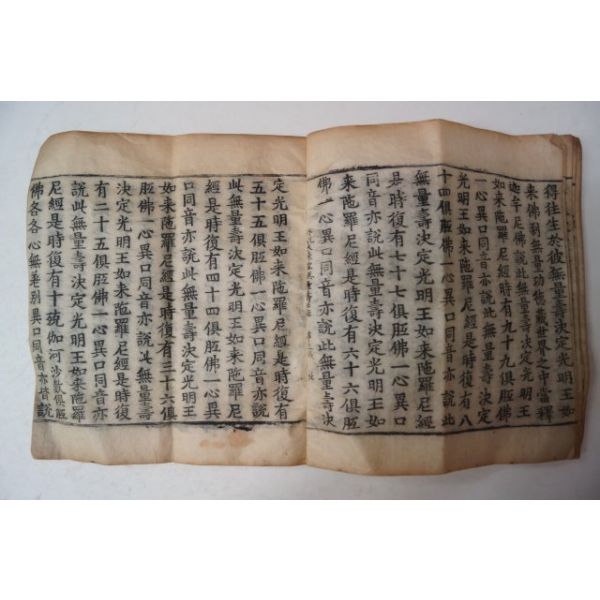 得往生於彼無量壽決定光明王如
来佛刹無量功德藏世界之中當釋
迦牟尼佛說此無量壽決定光明王
如来陁羅尼經時有九十九俱胝佛
一心異口同音亦說此無量壽決定
光明王如来陁羅尼經是時復有八
十四俱胝佛一心異口同音亦說此
無量壽決定光明王如来陁羅尼經
是時復有七十七俱胝佛一心異口
同音亦說此無量壽決定光明王如
来陁羅尼經是時復有六十六俱胝
佛一心異口同音亦說此無量壽決
定光明王如来陁羅尼經是時復有
五十五俱胝佛一心異口同音亦說
此無量壽決定光明王如来陁羅尼
經是時復有四十四俱胝佛一心異
口同音亦說此無量壽決定光明王
如来陁羅尼經是時復有三十六俱
胝佛一心異口同音亦說此無量壽
決定光明王如来陁羅尼經是時復
有二十五俱胝佛一心異口同音亦
說此無量壽決定光明王如来陁羅
尼經是時復有十殑伽河沙數俱胝
佛各各心無差別異口同音亦皆說